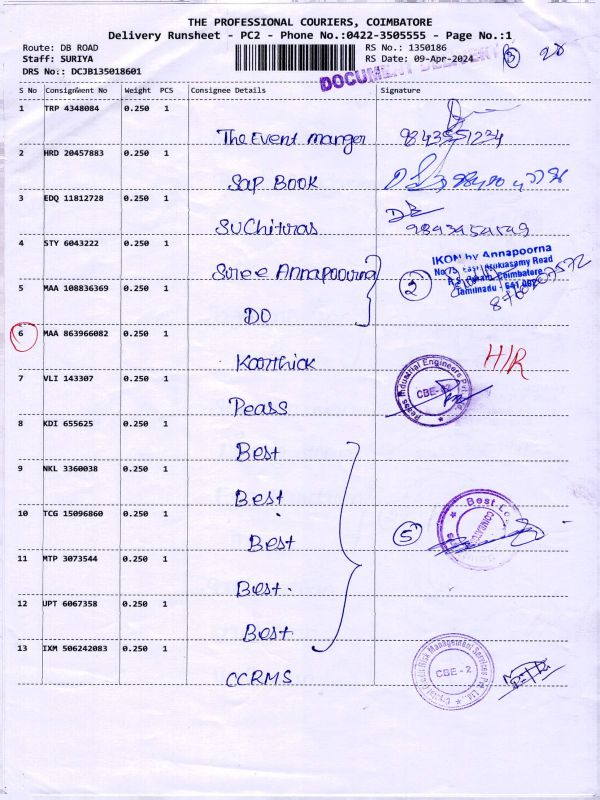 THE PROFESSIONAL COURIERS, COIMBATORE
Delivery Runsheet - PC2 - Phone No.:0422-3505555 - Page No.:1
Route: DB ROAD
RS No.: 1350186
Staff: SURIYA
RS Date: 09-Apr-2024
DRS No.: DCJB135018601
DOCUMENT
3 28
S No Consignment No Weight PCS Consignee Details Signature
1 TRP 4348084 0.250 1
The Event manger 9843551224
2 HRD 20457883 0.250 1
Sap Book
3 EDQ 11812728 0.250 1
SuChitras
4 STY 6043222 0.250 1
Sree Annapoorna
IKON by Annapoorna
Road
Coimbatore
Tamilnadu
2
5 MAA 108836369 0.250 1
DO
6 MAA 863966082 0.250 1
Karthick H/R
7 VLI 143307 0.250 1
Peass
Industrial Engineers
CBE
8 KDI 655625 0.250 1
Best
9 NKL 3360038 0.250 1
Best
10 TCG 15096860 0.250 1
Best
5
Best
11 MTP 3073544 0.250 1
Best
12 UPT 6067358 0.250 1
Best
13 IXM 506242083 0.250 1
CCRMS
Risk Management Services Pvt. Ltd.
CBE - 2